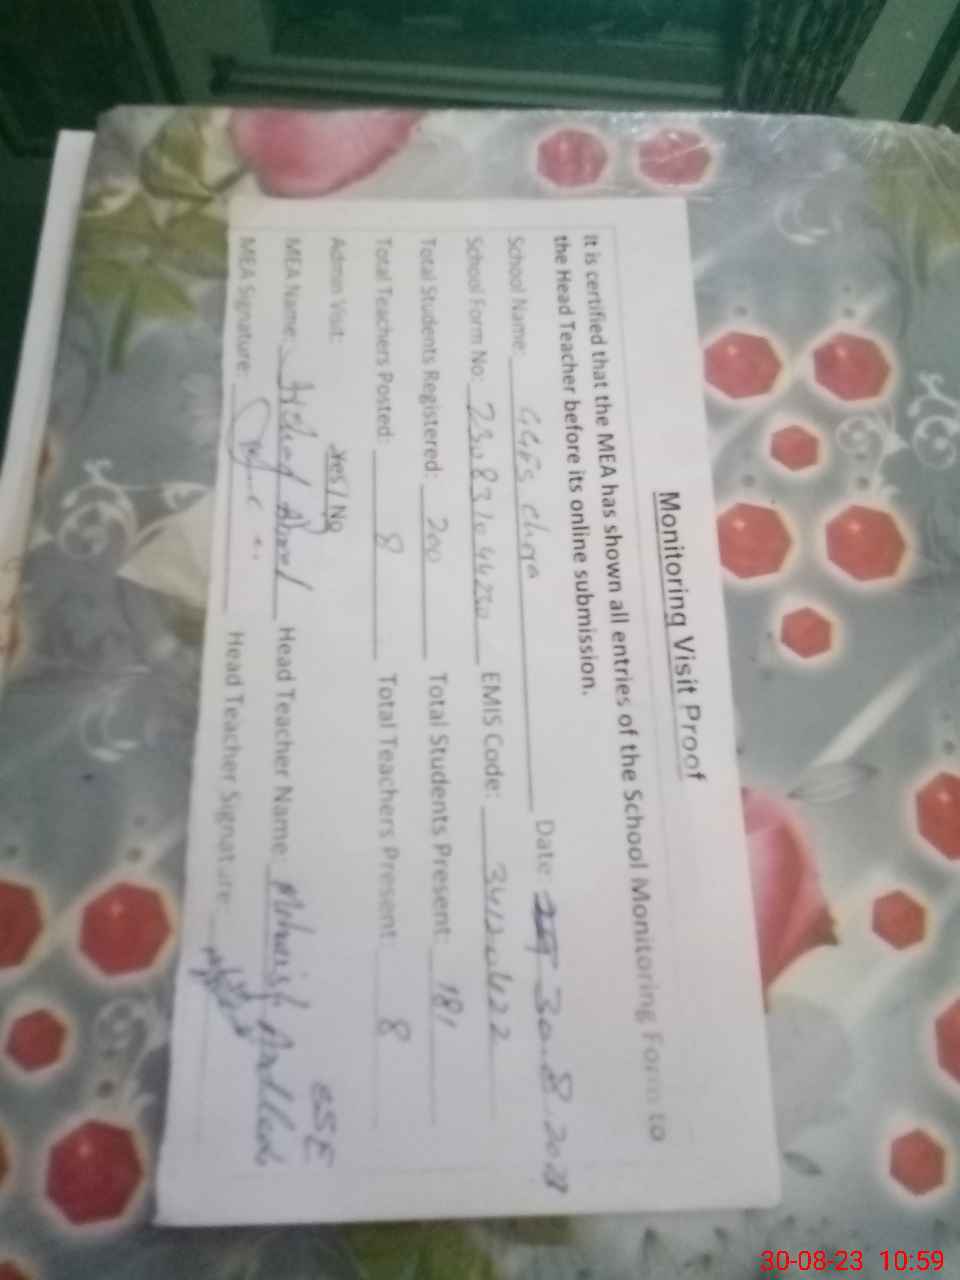 Monitoring Visit Proof
It is certified that the MEA has shown all entries of the School Monitoring Form to
the Head Teacher before its online submission.
School Name: GGES Date: 30.8.2023
School Form No: EMIS Code:
Total Students Registered: 200 Total Students Present: 181
Total Teachers Posted: 8 Total Teachers Present: 8
Admin Visit: Yes / No
ESE
MEA Name: Head Teacher Name:
MEA Signature: Head Teacher Signature:
30-08-23 10:59